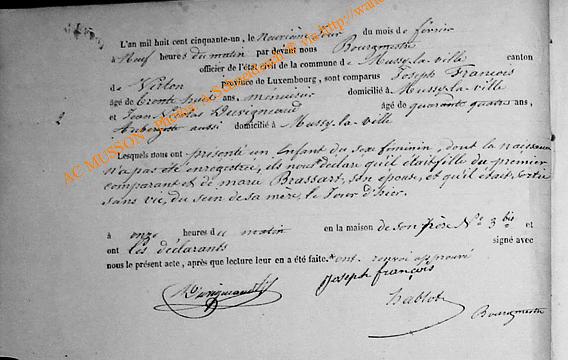 L'an mil huit cent cinquante-un, le neuvième jour du mois de février
à neuf heures du matin par devant nous Bourgmestre
officier de l'état civil de la commune de Mussy-la-ville canton
de Virton province de Luxembourg, sont comparus Joseph François
âgé de trente huit ans, Menuisier domicilié à Mussy-la-ville
et Jean Nicolas âgé de quarante quatre ans,
2 Aubergiste aussi domicilié à Mussy-la-ville
Lesquels nous ont présenté un Enfant du sexe féminin, dont la naissance
n'a pas été enregistrée, ils nous déclaré qu'il était fille du premier
comparant et de marie Brassart, son épouse, et qu'il était sortie
sans vie, du sein de sa mère, le Jour d'hier.
à onze heures du matin en la maison de son père N° 3 bis et
ont les déclarants signé avec
nous le présent acte, après que lecture leur en a été faite. ont. renvoi approuvé
joseph françois
Bourgmestre
AC MUSSON - Photos